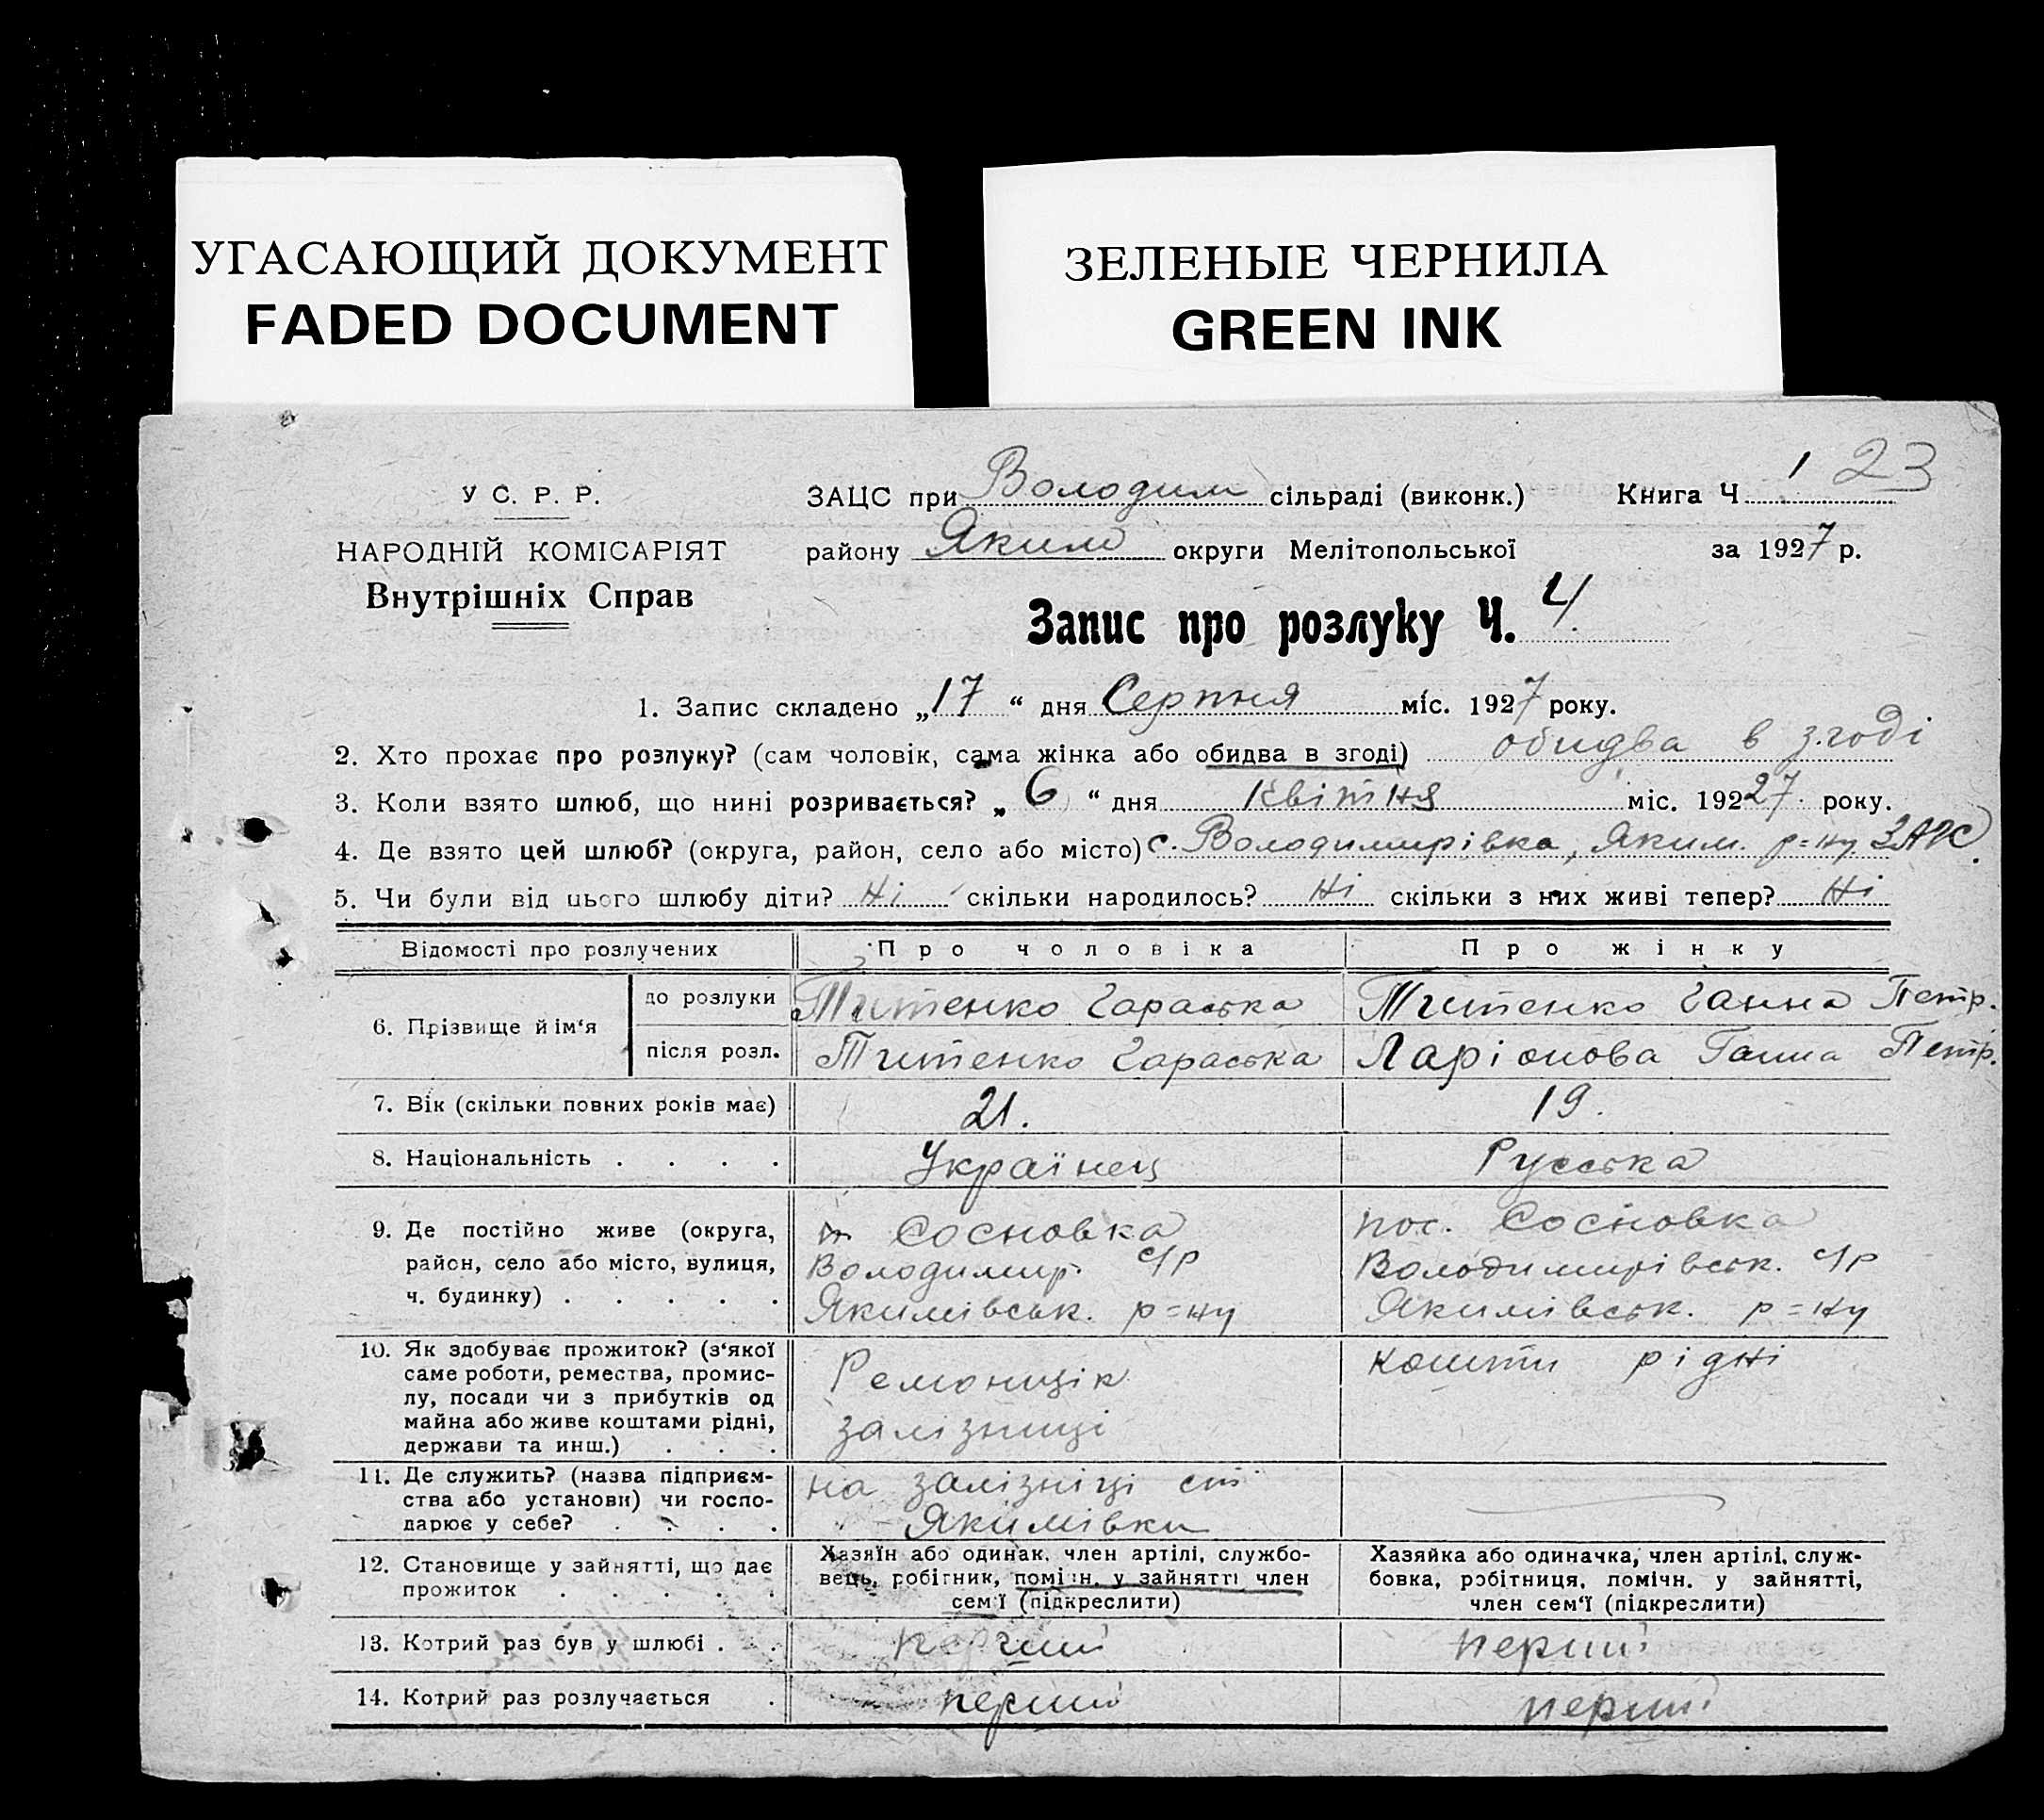 УГАСАЮЩИЙ ДОКУМЕНТ
FADED DOCUMENT
ЗЕЛЕНЫЕ ЧЕРНИЛА
GREEN INK
23
У С. Р. Р.
НАРОДНІЙ КОМІСАРІЯТ
Внутрішніх Справ
ЗАЦС при Володим сільраді (виконк.) Книга Ч 1
району Яким округи Мелітопольської за 1927 р.
Запис про розлуку Ч. 4
1. Запис складено „17“ дня Серпня міс. 1927 року.
2. Хто прохає про розлуку? (сам чоловік, сама жінка або обидва в згоді) обидва в згоді
3. Коли взято шлюб, що нині розривається? „6“ дня Квітня міс. 19227 року.
4. Де взято цей шлюб? (округа, район, село або місто) с. Володимирівка, Яким. р=ну ЗАГС.
5. Чи були від цього шлюбу діти? Ні скільки народилось? Ні скільки з них живі тепер? Ні
Відомості про розлучених Про чоловіка Про жінку
6. Прізвище й ім‘я
до розлуки Титенко Гараська Титенко Ганна Петр.
після розл. Титенко Гараська Ларіонова Ганна Петр.
7. Вік (скільки повних років має) 21. 19.
8. Національність . . . . Українец Русська
9. Де постійно живе (округа,
район, село або місто, вулиця,
ч. будинку) . . . . .
Сосновка
Володимир. с/р
Якимівськ. р=ну
пос. Сосновка
Володимирівськ. с/р
Якимівськ. р=ну
10. Як здобуває прожиток? (з‘якої
саме роботи, ремества, промис-
лу, посади чи з прибутків од
майна або живе коштами рідні,
держави та инш.) . . .
Ремонщік
залізниці
кошти рідні
11. Де служить? (назва підприєм-
ства або установи) чи госпо-
дарює у себе? . . . .
на залізниці ст
Якимівки
12. Становище у зайнятті, що дає
прожиток . . . . .
Хазяїн або одинак, член артілі, службо-
вець, робітник, помічн. у зайнятті член
сем‘ї (підкреслити)
Хазяйка або одиначка, член артілі, служ-
бовка, робітниця, помічн. у зайнятті,
член сем‘ї (підкреслити)
13. Котрий раз був у шлюбі . . перший перший
14. Котрий раз розлучається . перший перший